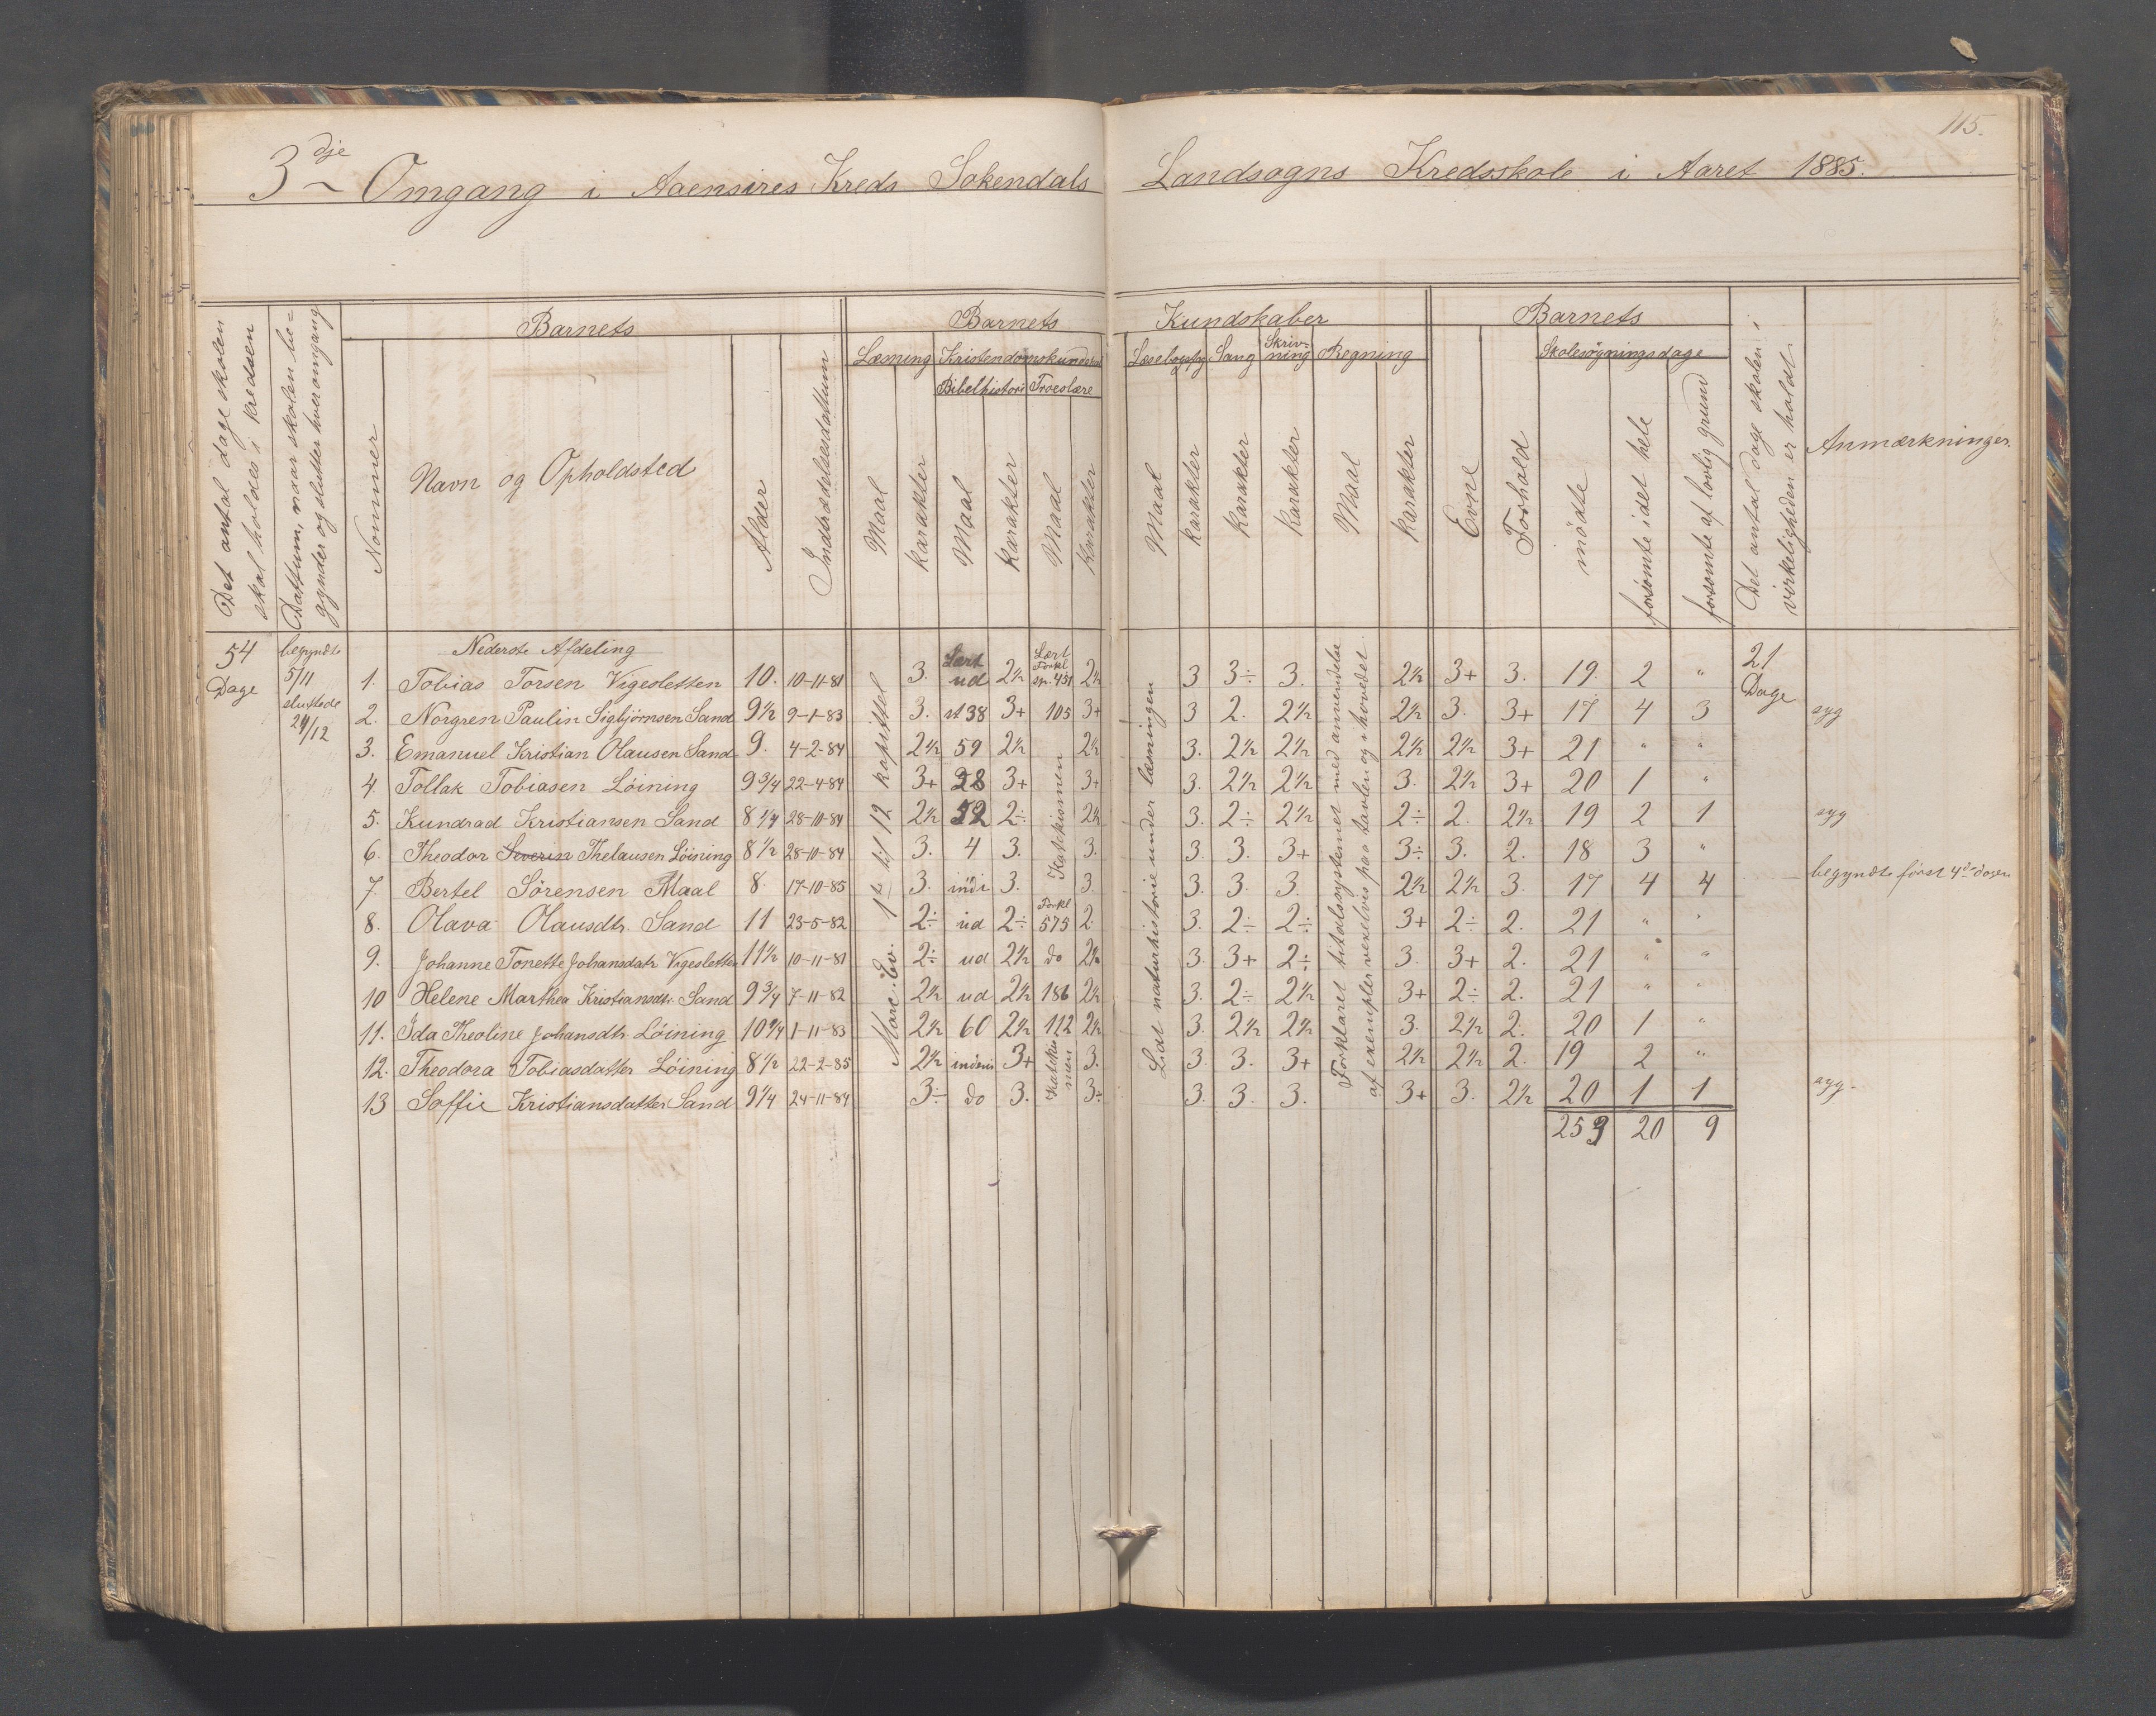 115.
3dje Omgang i Aaensires Kreds Sokendals Landsogns Kredsskole i Aaret 1885.
Det antal dage skolen skal holdes i kredsen
Dattum, naar skolen be=
gynder og slutter hver omgang
Barnets
Nommer
Navn og Opholdsted
Alder
Indtrædelsesdattum
Barnets Kundskaber
Læsning
Maal
Karakter
Kristendomskundskab
Bibelhistorie
Maal
Karakter
Troeslære
Maal
Karakter
Læsebogsfag
Maal
Karakter
Sang
Karakter
Skriv-
ning
Karakter
Regning
Maal
Karakter
Barnets
Evne
Forhold
Skolesøgningsdage
mødte
forsømte idet hele
forsømte af lovlig grund
Det antal dage skolen i
virkeligheden er holdt
Anmærkninger.
54 Dage
begyndte 5/11 sluttede 24/12
Nederste Afdeling
1ste til 12 kapittel Marc. Ev.
Lidt naturhistorie under læsningen
Forklaret titalssystemet med anvendelse
af exempler vexelvis paa tavlen og i hovedet.
21 Dage
1. Tobias Torsen Vigesletten 10. 10-11-81 3. Lært ud 2½ Lært Forkl sp. 451 2½ 3 3÷ 3. 2½ 3+ 3. 19. 2 "
2. Norgren Paulin Sigbjørnsen Sand 9½ 9-1-83 3. st 38 3+ 105 3+ 3 2. 2½ 2½ 3. 3+ 17 4 3 syg
3. Emanuel Kristian Olausen Sand 9. 4-2-84 2½ 59 2½ Katekismen 2½ 3. 2½ 2½ 2½ 2½ 3+ 21 " "
4. Tollak Tobiasen Löining 9¾ 22-4-84 3+ 28 3+ 3+ 3. 2½ 2½ 3. 2½ 3+ 20 1 "
5. Kundrad Kristiansen Sand 8¼ 28-10-84 2½ 52 2÷ 2½ 3. 2÷ 2½ 2÷ 2. 2½ 19 2 1 syg
6. Theodor Severin Thelausen Löining 8½ 28-10-84 3. 4 3. 3. 3. 3. 3+ 3÷ 3. 2. 18 3 "
7. Bertel Sörensen Maal 8. 17-10-85 3. indi 3. 3. 3. 3. 3. 2½ 2½ 3. 17 4 4 begyndte først 4de dagen
8. Olava Olausdtr. Sand 11 23-5-82 2÷ ud 2÷ Forkl 575 2. 3. 2÷ 2÷ 3+ 2÷ 2. 21 " "
9. Johanne Tonette Johansdatr Vigesletten 11½ 10-11-81 2÷ ud 2½ do 2½ 3. 3+ 2÷ 3. 3+ 2. 21 " "
10 Helene Marthea Kristiansdtr. Sand 9¾ 7-11-82 2½ ud 2½ 186 2½ 3. 2÷ 2½ 3+ 2÷ 2. 21 " "
11. Ida Theoline Johansdtr. Löining 10¼ 1-11-83 2½ 60 2½ 112 2½ 3. 2½ 2½ 3. 2½ 2. 20 1 "
12. Theodora Tobiasdatter Löining 8½ 22-2-85 2½ 3+ Katekis
men 3. 3. 3. 3+ 2½ 2½ 2. 19 2 "
13 Soffie Kristiansdatter Sand 9¼ 24-11-84 3÷ do 3. 3÷ 3. 3. 3. 3+ 3. 2½ 20 1 1 syg-
253 20 9